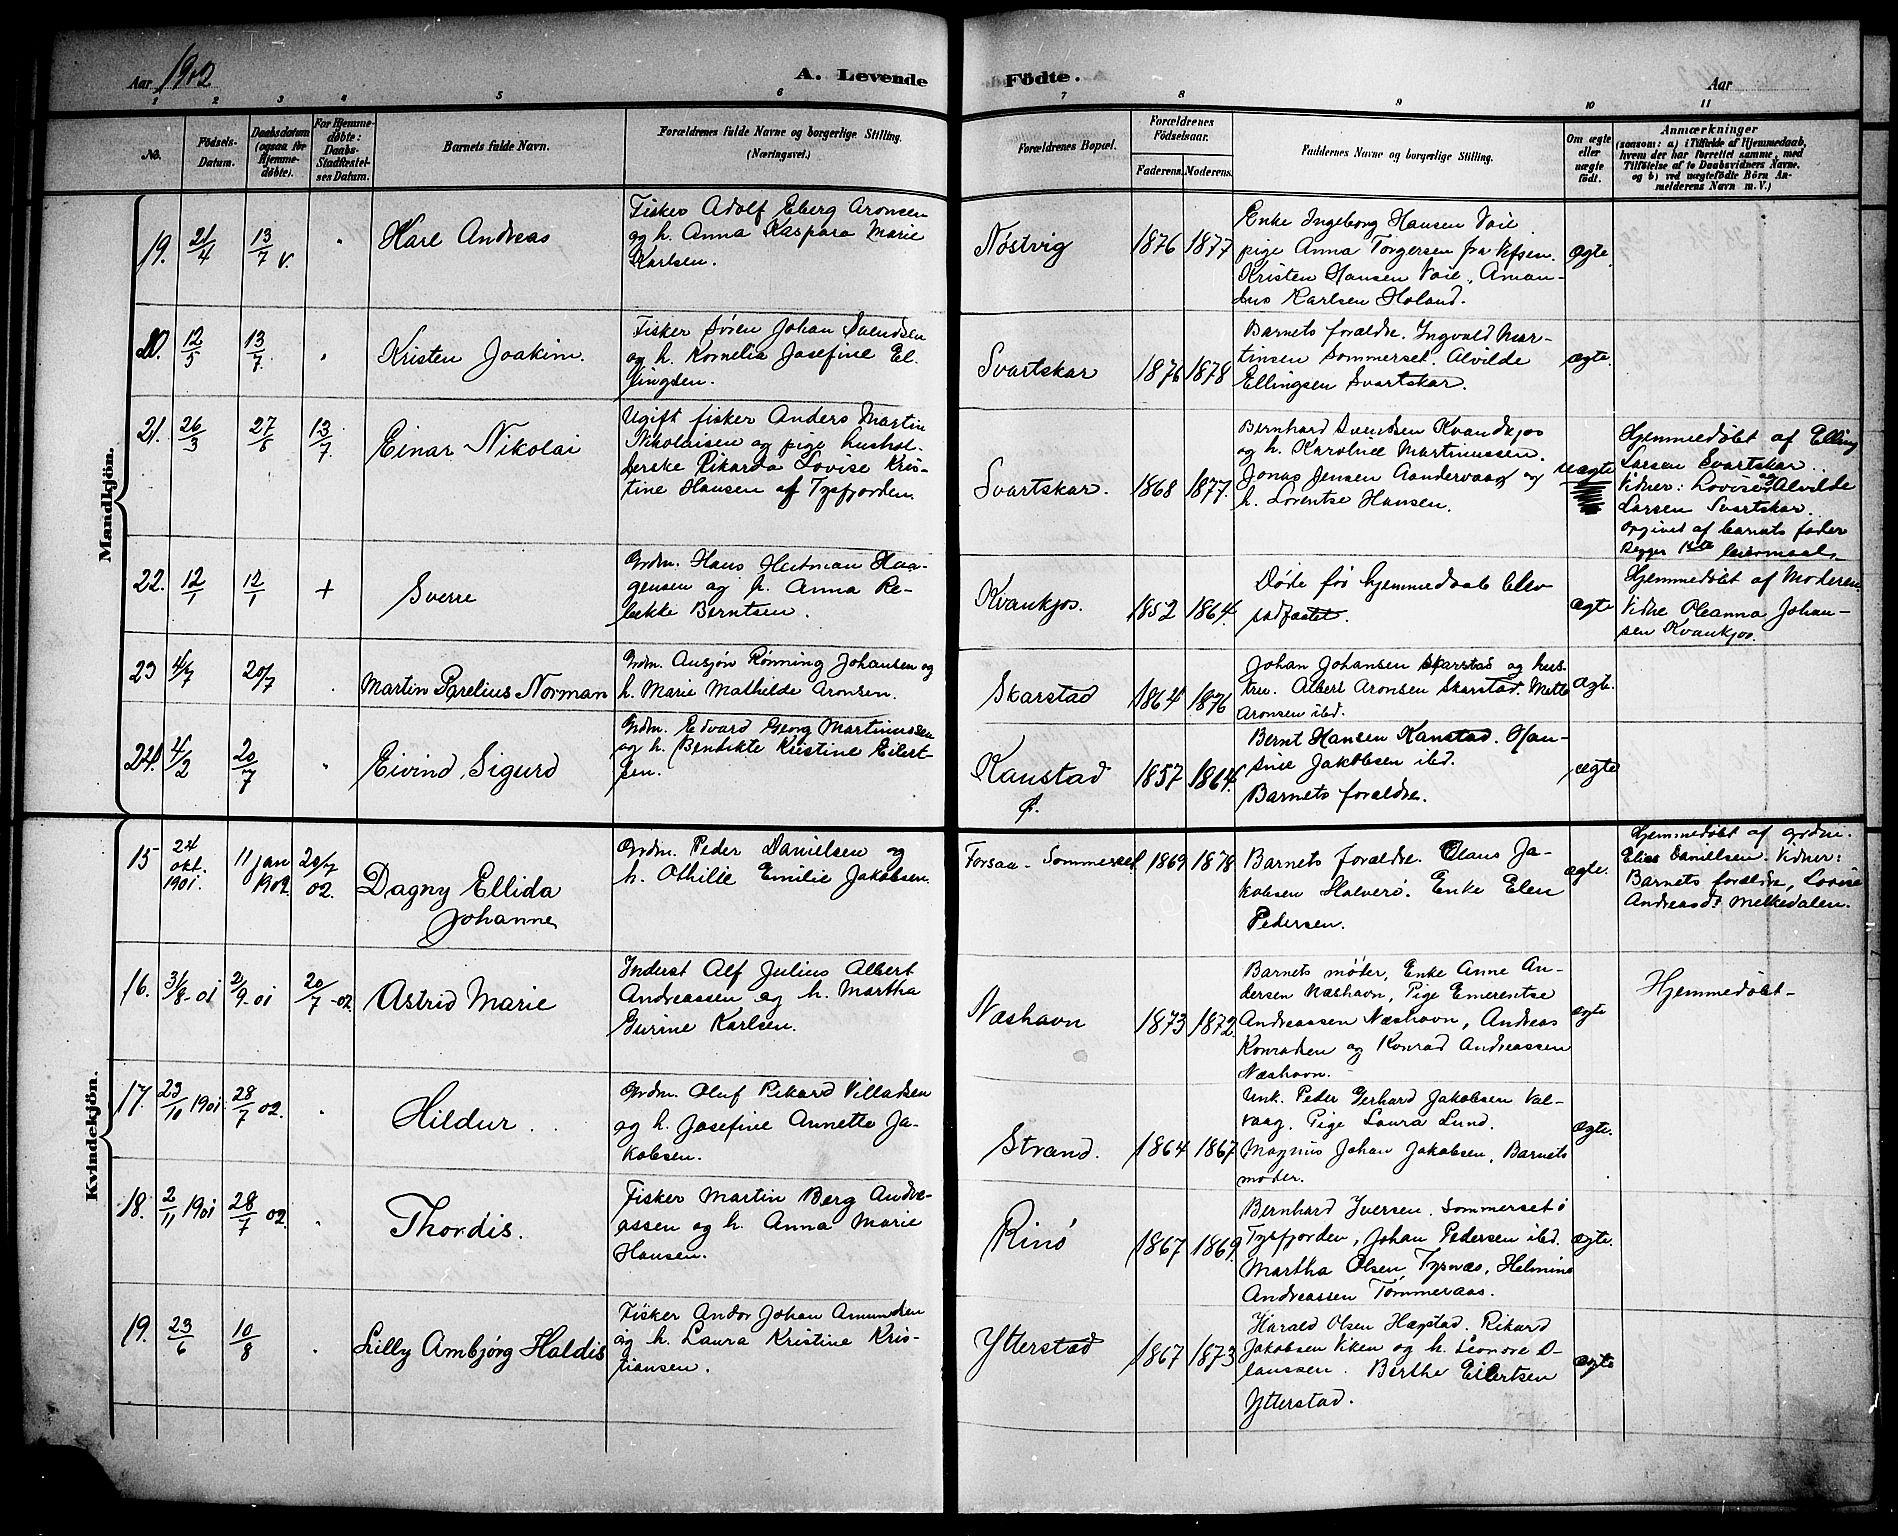 Aar 1902
A. Levende
Födte.
Aar
1 2 3 4 5 6 7 8 9 10 11
No.
Födsels-
Datum.
Daabsdatum
(ogsaa for
Hjemme-
døbte).
For Hjemme-
døbte:
Daabs-
Stadfæstel-
ses Datum.
Barnets fulde Navn.
Forældrenes fulde Navne og borgerlige Stilling.
(Næringsvei.)
Forældrenes Bopæl.
Forældrenes
Födselsaar.
Faderens. Moderens.
Faddernes Navne og borgerlige Stilling.
Om ægte
eller
uægte
födt.
Anmærkninger
(saasom: a) i Tilfælde af Hjemmedaab,
hvem der har forrettet samme, med
Tilföielse af to Daabsvidners Navne.
og b) ved uægtefödte Börn An-
melderens Navn m. V.)
Mandkjön.
19. 21/4 13/7 v. " Karl Andreas
Fisker Adolf Eberg Aronsen
og h. Anna Kaspara Marie
Karlsen.
Nøstvig 1876 1877
Enke Ingeborg Hansen Vaie.
pige Anna Torgersen fra Vefsen.
Kristen Hansen Vaie, Aman-
dus Karlsen Holand.
ægte
20. 12/5 13/7. " Kristen Joakim.
Fisker Søren Johan Svendsen
og h. Kornelia Josefine El-
lingsen.
Svartskar 1876 1878
Barnets forældre. Ingvald Mar-
tinsen Sommerset. Alvilde
Ellingsen Svartskar.
ægte.
21. 26/3 27/6 13/7. Einar Nikolai
Ugift fisker Anders Martin
Nikolaisen og pige hushol-
derske Rikarda Lovise Kris-
tine Hansen af Tysfjorden.
Svartskar. 1868 1877.
Bernhard Svendsen Kvandkjos
og h. Karoline Martinussen.
Jonas Jensen Aandervaag og
h. Lorentse Hansen.
uægte
Hjemmedøbt af Elling
Larsen Svartskar.
Vidner: Lovise og Alvilde
Larsen Svartskar.
opgivet af barnets fader
begges 1ste leiermaal.
22. 12/1 12/1 + Sverre
Grdm. Hans Hartman Haa-
gensen og h. Anna Re-
bekke Berntsen.
Kvankjos. 1852 1864.
Døde før hjemmedaab blev
stadfæstet.
ægte
Hjemmedøbt af Moderen.
Vidne Oleanna Johan-
sen Kvankjos.
23 4/7 20/7 " Martin Parelius Norman
Grdm. Ansjøn Rønning Johansen og
h. Marie Mathilde Aronsen.
Skarstad 1864 1876
Johan Johansen Skarstad og hus-
tru. Albert Aronsen Skarstad. Mette
Aronsen ibd.
ægte.
24. 4/2 20/7 " Eivind Sigurd
Grdm. Edvard Georg Martinussen
og h. Bendikte Kristine Eilert-
sen.
Kanstad
Ø.
1857 1864
Bernt Hansen Kanstad. Han-
sine Jakobsen ibd.
Barnets forældre.
ægte
Kvindekjön.
15 24 okt. 1901. 11 jan 1902. 20/7 02. Dagny Ellida
Johanne
Grdm. Peder Danielsen og
h. Othilie Emilie Jakobsen.
Forsaa - Sommerset 1869 1878
Barnets forældre. Claus Ja-
kobsen Halverø. Enke Elen
Pedersen.
ægte.
Hjemmedøbt af grdm.
Elias Danielsen. Vidner:
Barnets forældre, Lovise
Andreasdt Melkedalen.
16. 31/8-01 2/9-01 20/7-02. Astrid Marie
Inderst Alf Julius Albert
Andreassen og h. Martha
Gurine Karlsen.
Næshavn 1873 1872.
Barnets moder, Enke Anne An-
dersen Næshavn, Pige Emerentse
Andreassen Næshavn, Andreas
Konradsen og Konrad Andreassen
Næshavn.
ægte
Hjemmedøbt-
17. 23/10 1901. 28/7 02. " Hildur.
Grdm. Oluf Rikard Villadsen
og h. Josefine Annette Ja-
kobsen.
Strand. 1864 1867
Unk. Peder Gerhard Jakobsen Val-
vaag. Pige Laura Lund.
Magnus Johan Jakobsen, Barnets
moder.
ægte.
18. 2/11 1901 28/7 02. " Thordis.
Fisker Martin Berg Andre-
assen og h. Anna Marie
Hansen.
Rinø 1867 1869.
Bernhard Iversen. Sommerset i
Tysfjorden, Johan Pedersen ibd.
Martha Olsen Tysnæs, Helmine
Andreassen Tømmeraas.
ægte.
19. 23/6 10/8 " Lilly Ambjørg Haldis
Fisker Andor Johan Amundsen
og h. Laura Kristine Kris-
tiansen.
Ytterstad 1867 1873
Harald Olsen Hægstad. Rikard
Jakobsen Viken og h. Leonore O-
laussen. Berthe Eilertsen
Ytterstad.
ægte